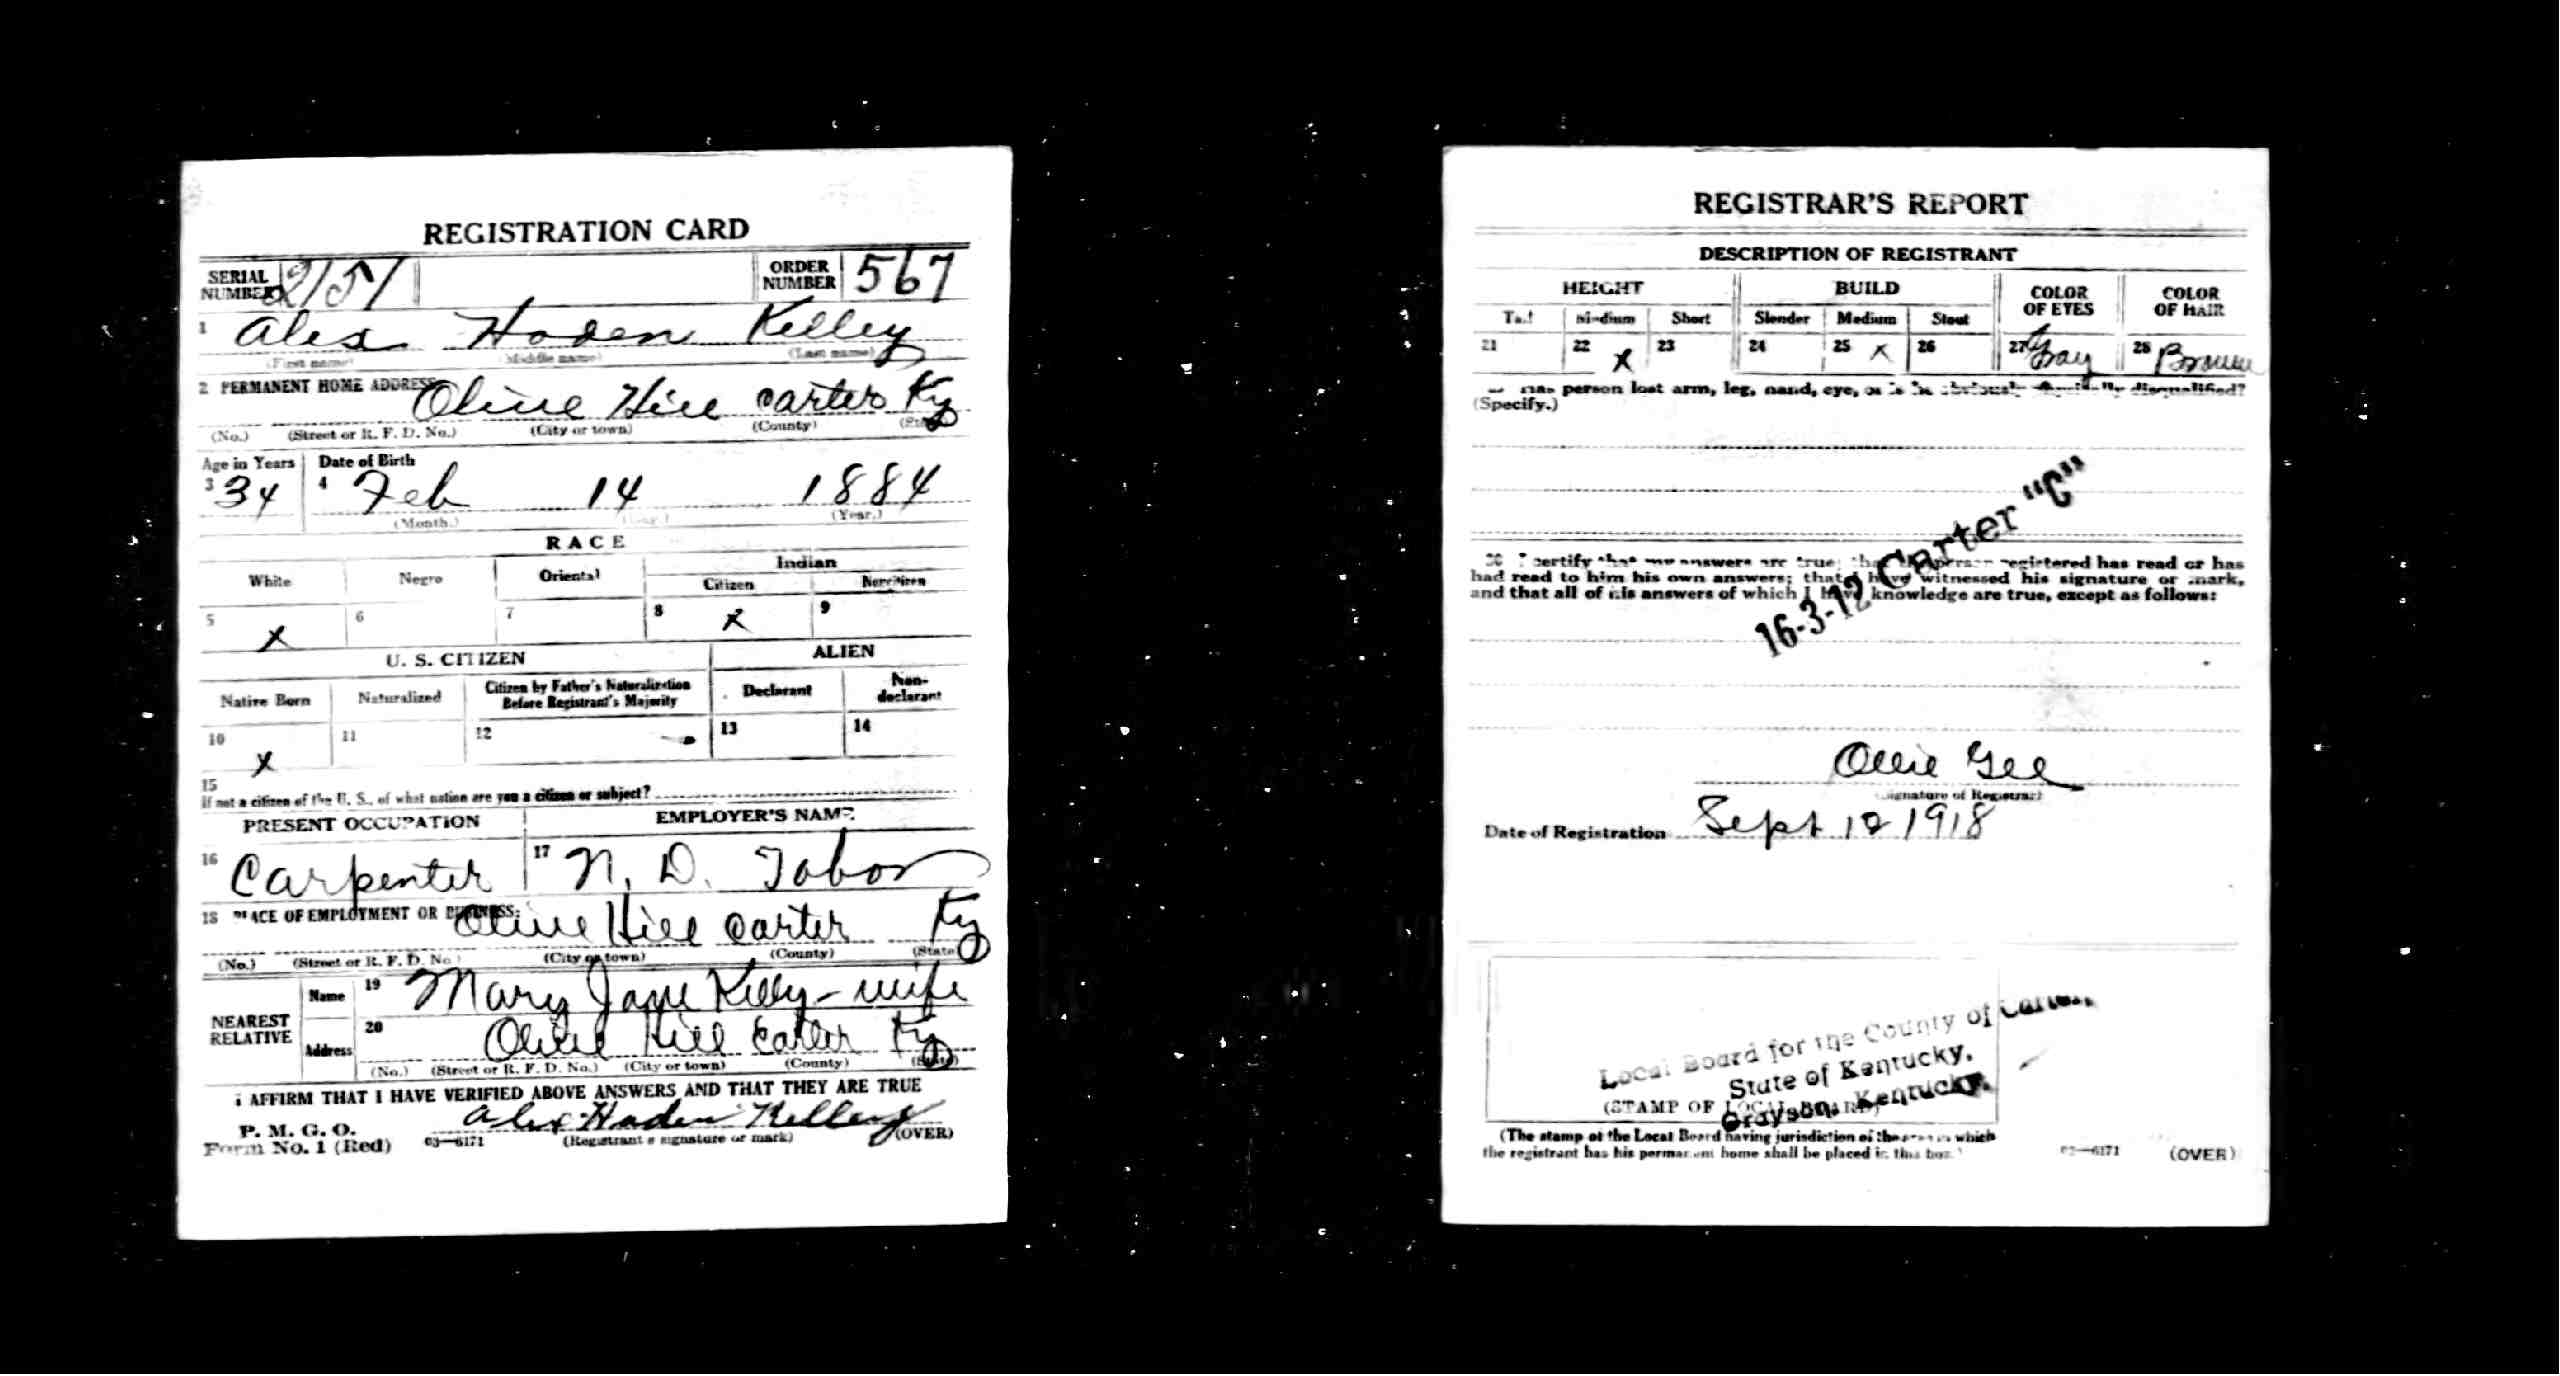 REGISTRATION CARD
SERIAL NUMBER 2151 ORDER NUMBER 567
1 Alex Haden Kelley
(First name) (Middle name) (Last name)
2 PERMANENT HOME ADDRESS Olive Hill Carter Ky
(No.) (Street or R. F. D. No.) (City or town) (County) (State)
Age in Years Date of Birth
3 34 4 Feb 14 1884
(Month.) (Day.) (Year.)
RACE
White Negro Oriental Indian
Citizen Noncitizen
5 X 6 7 8 X 9
U. S. CITIZEN ALIEN
Native Born Naturalized Citizen by Father's Naturalization Before Registrant's Majority Declarant Non-declarant
10 X 11 12 13 14
15
If not a citizen of the U. S., of what nation are you a citizen or subject?
PRESENT OCCUPATION EMPLOYER'S NAME
16 Carpenter 17 N. D. Tabor
18 PLACE OF EMPLOYMENT OR BUSINESS: Olive Hill Carter Ky
(No.) (Street or R. F. D. No.) (City or town) (County) (State)
NEAREST RELATIVE Name 19 Mary Jane Kelley - wife
Address 20 Olive Hill Carter Ky
(No.) (Street or R. F. D. No.) (City or town) (County) (State)
I AFFIRM THAT I HAVE VERIFIED ABOVE ANSWERS AND THAT THEY ARE TRUE
P. M. G. O.
Form No. 1 (Red) 03—6171 Alex Haden Kelley
(Registrant's signature or mark) (OVER)
REGISTRAR'S REPORT
DESCRIPTION OF REGISTRANT
HEIGHT BUILD COLOR OF EYES COLOR OF HAIR
Tall Medium Short Slender Medium Stout
21 22 X 23 24 25 X 26 27 Gray 28 Brown
29 Has person lost arm, leg, hand, eye, or is he obviously physically disqualified?
(Specify.)
30 I certify that my answers are true; that the person registered has read or has
had read to him his own answers; that I have witnessed his signature or mark,
and that all of his answers of which I have knowledge are true, except as follows:
16-3-12 Carter "C"
Ollie Gee
(Signature of Registrar)
Date of Registration Sept 12 1918
Local Board for the County of Carter,
State of Kentucky,
Grayson, Kentucky.
(STAMP OF LOCAL BOARD)
(The stamp of the Local Board having jurisdiction of the area in which
the registrant has his permanent home shall be placed in this box.)
03—6171 (OVER)